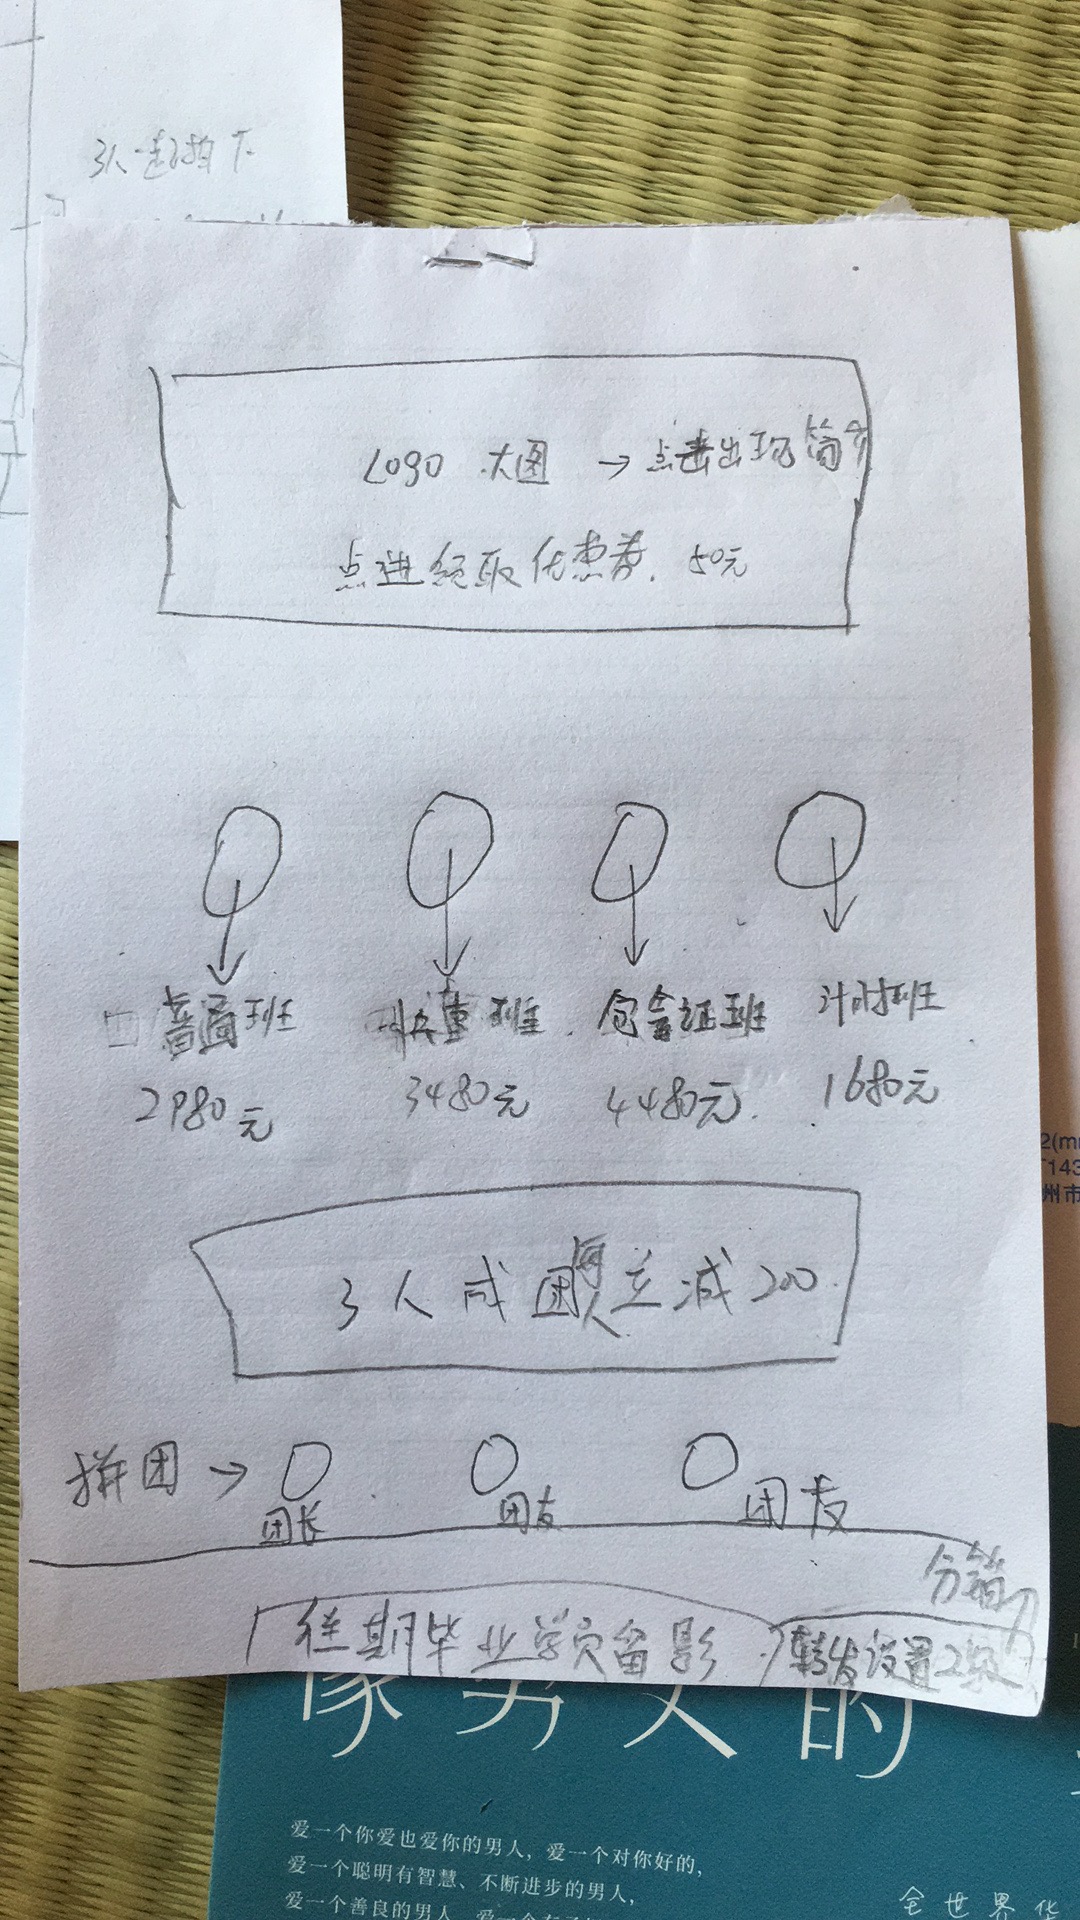 3人一起拍下
LOGO 大图 → 点击出现简介
点进领取优惠券. 50元
普通班
快车班
包拿证班
计时班
2980元
3480元
4480元.
1680元
3人成团每人立减200.
拼团 →
团长
团友
团友
分销
往期毕业学员留影
转发设置2级
2(mm
143
州市
像男人的
爱一个你爱也爱你的男人，爱一个对你好的，
爱一个聪明有智慧、不断进步的男人，
爱一个善良的男人
全世界华